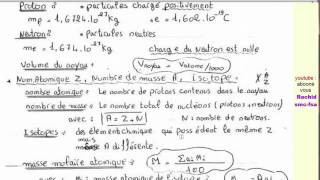 Proton : • particules chargé positivement
mp = 1,6724.10⁻²⁷ kg , e = 1,602.10⁻¹⁹ C
Neutron : • particules neutres
me = 1,674.10⁻²⁷ kg charge du Neutron est nulle
Volume du noyau = Vnoyau = Volume/1000
Num.Atomique Z, Nombre de masse A, isotope :
nombre atomique : le nombre de protons contenus dans le noyau
nombre de masse : nombre total de nucléons (protons + neutrons)
avec : A = Z + N N : nombre de neutrons.
Isotopes : des element chimique qui possédent le même Z
mais
A différente.
masse molaire atomique : M = Σ ai Mi / 100
avec : M : masse atomique de l'isotope
youtube
abonne
vous
Rachid
smc-fsa